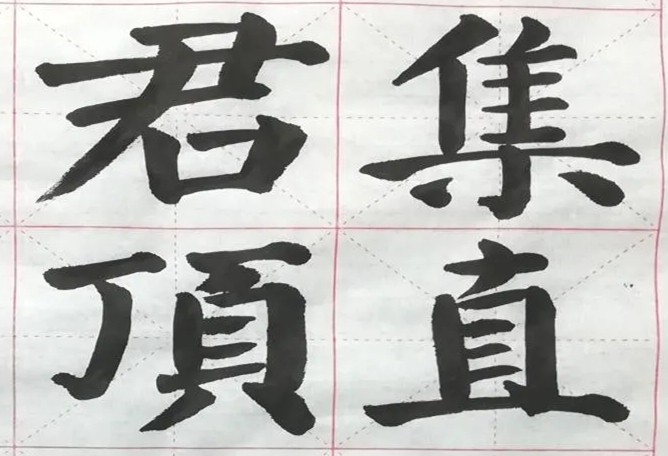 君集
頂直